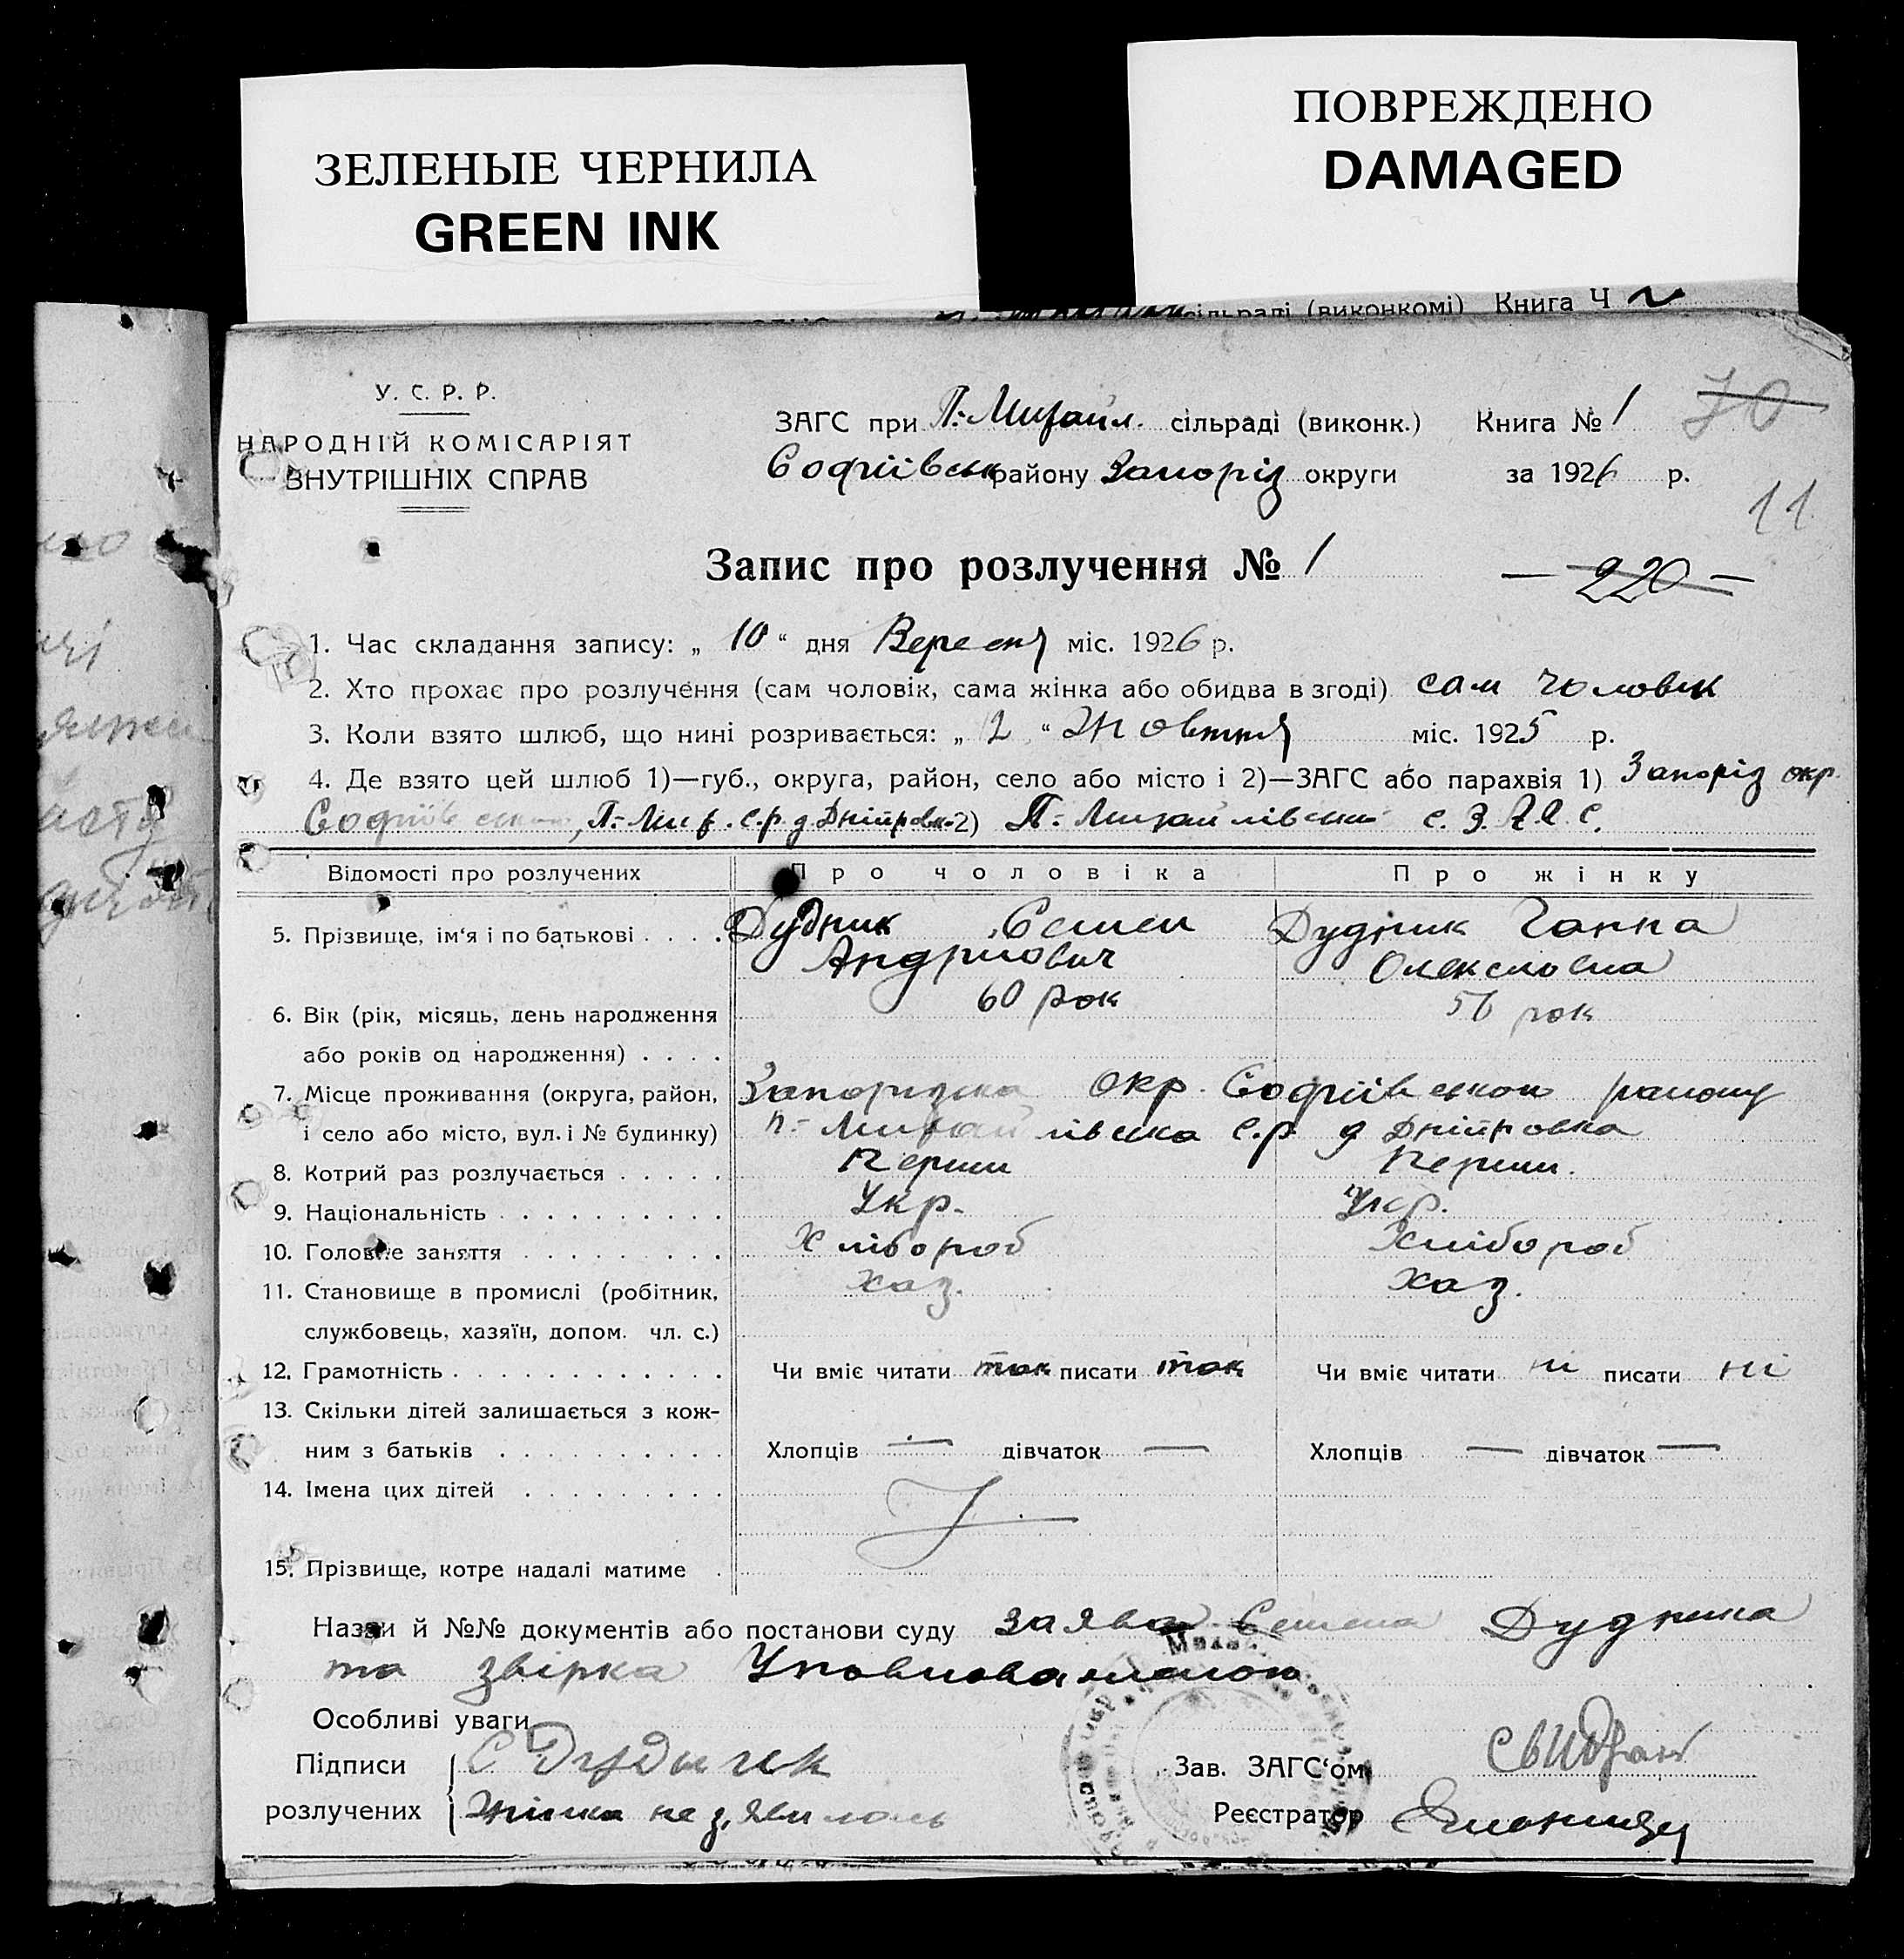 ЗЕЛЕНЫЕ ЧЕРНИЛА
GREEN INK
ПОВРЕЖДЕНО
DAMAGED
сільраді (виконкомі) Книга Ч
У. С. Р. Р.
НАРОДНІЙ КОМІСАРІЯТ
ВНУТРІШНІХ СПРАВ
ЗАГС при П.-Михайл. сільраді (виконк.) Книга № 1
70
Софіївськ району Запоріз округи за 1926 р.
11
Запис про розлучення № 1
— 220 —
1. Час складання запису: „ 10 “ дня Вересня міс. 1926 р.
2. Хто прохає про розлучення (сам чоловік, сама жінка або обидва в згоді) сам чоловік
3. Коли взято шлюб, що нині розривається: „ 2 “ Жовтня міс. 1925 р.
4. Де взято цей шлюб 1)—губ., округа, район, село або місто і 2)—ЗАГС або парахвія 1) Запоріз окр.
П.-Мих. с.р. д. Дніпровка 2) П.-Михайлівськи с. З.А.Г.С.
Відомості про розлучених Про чоловіка Про жінку
5. Прізвище, ім‘я і по батькові . . . . Дудник Семен Дудник Ганна
Андріїович Олексіовна
6. Вік (рік, місяць, день народження 60 рок 56 рок
або років од народження) . . . .
7. Місце проживання (округа, район, Запоризька окр. Софіївськой району
і село або місто, вул. і № будинку) п.-Михайлівська с.р. д Дніпровка
8. Котрий раз розлучається . . . . . Перши Перши.
9. Національність . . . . . . . . . . Укр. Укр.
10. Головне заняття . . . . . . . . . Хлібороб Хлібороб
11. Становище в промислі (робітник, хаз. хаз.
службовець, хазяїн, допом. чл. с.)
12. Грамотність . . . . . . . . . . . . Чи вміє читати так писати так Чи вміє читати ні писати ні
13. Скільки дітей залишається з кож-
ним з батьків . . . . . . . . . . Хлопців — дівчаток — Хлопців — дівчаток —
14. Імена цих дітей . . . . . . . . .
15. Прізвище, котре надалі матиме .
Назви й №№ документів або постанови суду заява Семена Дудника
та звірка
Особливі уваги
Підписи С Дудник Зав. ЗАГС‘ом
розлучених Жінка не з,явилась Реєстратор